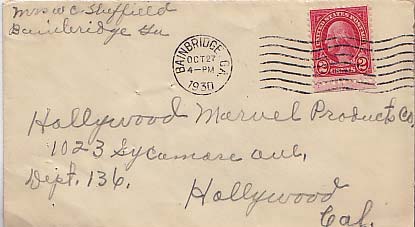 Mrs W C Sheffield
Bainbridge Ga
BAINBRIDGE, GA.
OCT 27
4-PM
1930
UNITED STATES POSTAGE
2 CENTS 2
Hollywood Marvel Products Co,
1023 Sycamore Ave,
Dept. 136.
Hollywood
Cal.